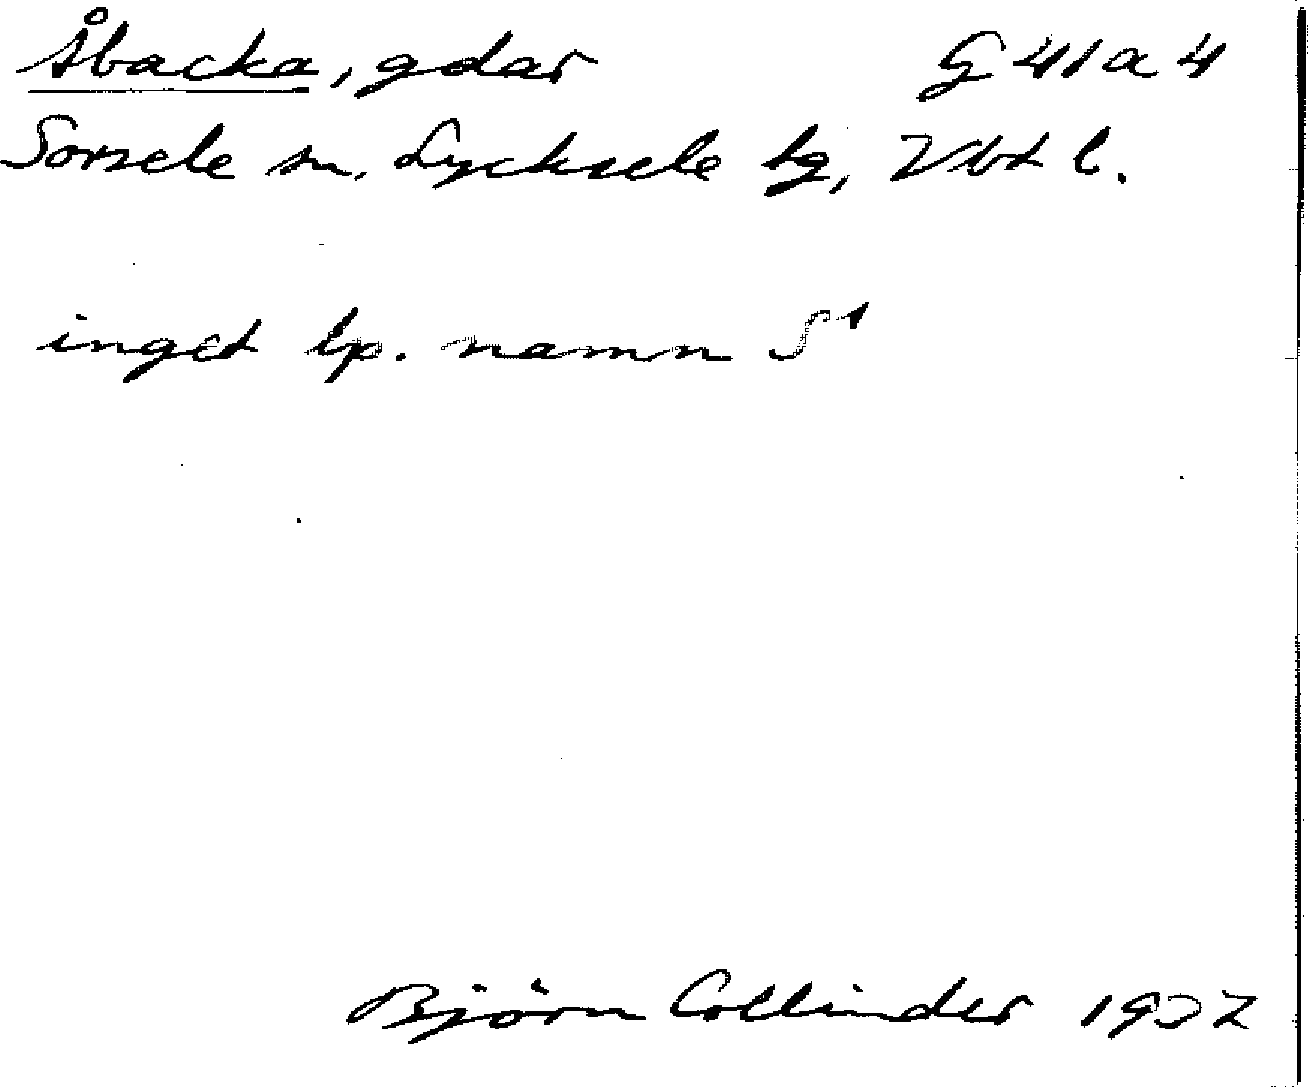 Åbacka, gdar G 41 a 4
Sorsele sn, Lycksele lg, Vbt l.
inget lp. namn S1
Björn Collinder 1932